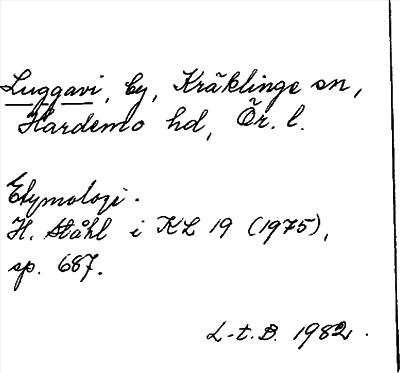 Luggavi, by, Kräklinge sn,
Hardemo hd, Ör. l.
Etymologi.
H. Ståhl i KL 19 (1975),
sp. 687.
L-t. B. 1982.